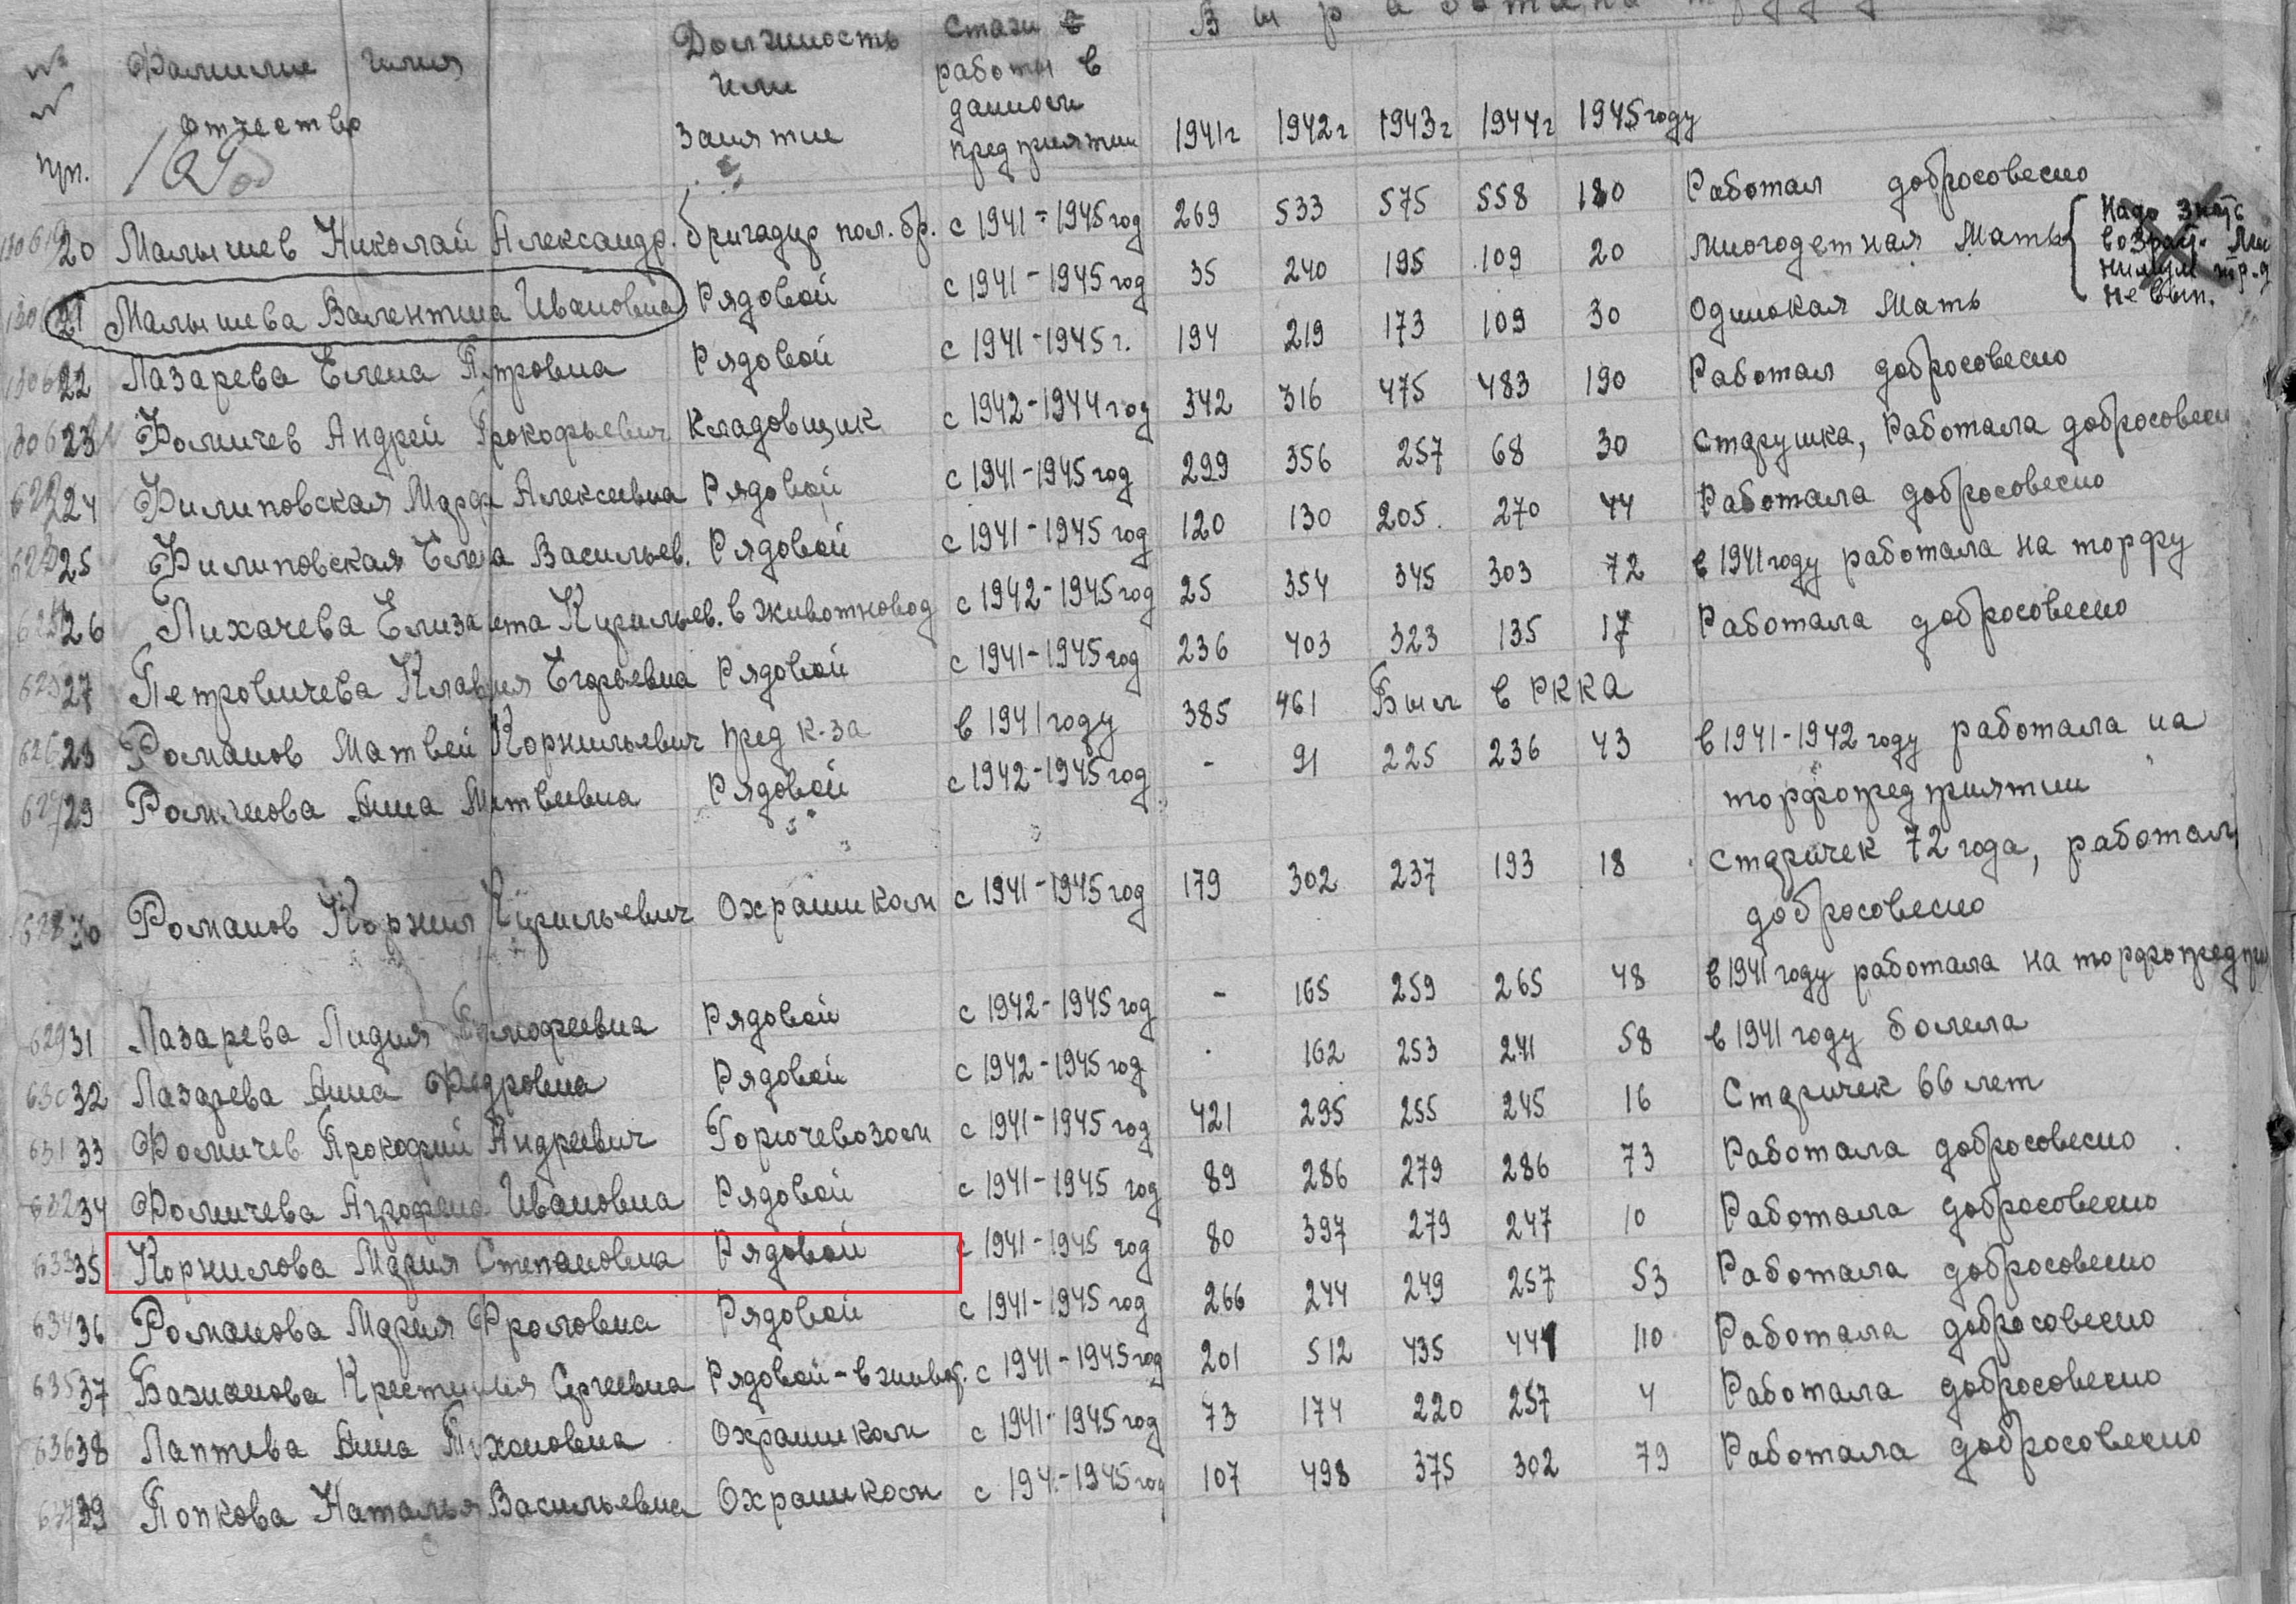 № Фамилие имия Должность Стаж в Выработано
№ отчество или работы в
пп. занятие данном
предприятии 1941г 1942г 1943г 1944г 1945 году
20 Малышев Николай Александр. бригадир пол. бр. с 1941-1945 год 269 533 575 558 180 Работал добросовесно
21 Малышева Валентина Ивановна Рядовой с 1941-1945 год 35 240 195 109 20 многодетная мать { Надо знать возраст. Ми нимум тр.д не вып.
22 Лазарева Елена Петровна Рядовой с 1941-1945 г. 194 219 173 109 30 Одинокая мать
23 Фомичев Андрей Прокофьевич Кладовщик с 1942-1944 год 342 316 475 483 190 Работал добросовесно
24 Филиповская Марфа Алексеевна Рядовой с 1941-1945 год 299 356 257 68 30 Старушка, Работала добросовесн
25 Филиповская Елена Васильев. Рядовой с 1941-1945 год 120 130 205 270 44 Работала добросовесно
26 Лихачева Елизавета Кирильев. в животновод с 1942-1945 год 25 354 345 303 72 в 1941 году работала на торфу
27 Петровичева Клавдия Егорьевна Рядовой с 1941-1945 год 236 403 323 135 17 Работала добросовесно
28 Романов Матвей Корнильевич пред к-за в 1941 году 385 461 Был в РККА
29 Романова Анна Матвеевна Рядовой с 1942-1945 год - 91 225 236 43 в 1941-1942 году работала на
торфопредприятии
30 Романов Корнил Кирильевич Охранником с 1941-1945 год 179 302 237 193 18 старичек 72 года, работал
добросовесно
31 Лазарева Лидия Тимофеевна Рядовой с 1942-1945 год - 165 259 265 48 в 1941 году работала на торфопредпри
32 Лазарева Анна Федровна Рядовой с 1942-1945 год . 162 253 271 58 в 1941 году болела
33 Фомичев Прокофий Андреевич Горючевозом с 1941-1945 год 421 295 255 245 16 Старичек 66 лет
34 Фомичева Агрофена Ивановна Рядовой с 1941-1945 год 89 286 279 286 73 Работала добросовесно
35 Корнилова Мария Степановна Рядовой с 1941-1945 год 80 397 279 247 10 Работала добросовесно
36 Романова Мария Фроловна Рядовой с 1941-1945 год 266 244 249 257 53 Работала добросовесно
37 Бажанова Крестиния Сергеевна Рядовой-в живот. с 1941-1945 год 201 512 435 444 110 Работала добросовесно
38 Лаптева Анна Тихоновна Охранником с 1941-1945 год 73 174 220 257 4 Работала добросовесно
39 Попкова Наталья Васильевна Охранником с 194.-1945 год 107 498 375 302 79 Работала добросовесно